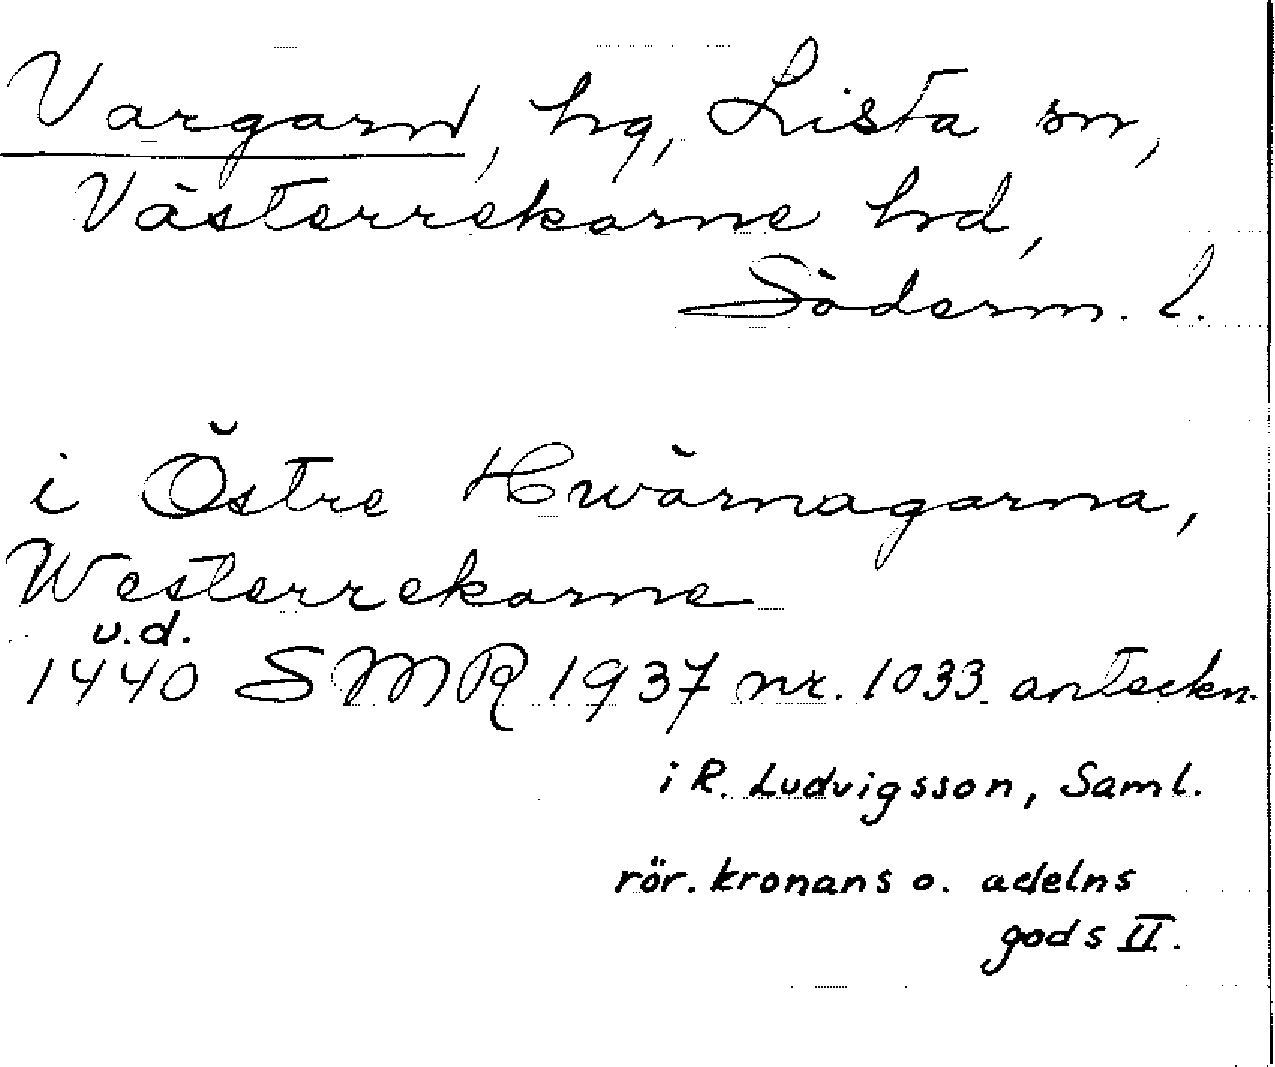 Vargarn, hg, Lista sn,
Västerrekarne hd,
Söderm. l.
i Östre Hwärnagarna,
Westerrekarne
u.d.
1440 SMR 1937 nr. 1033 anteckn.
i R. Ludvigsson, Saml.
rör. kronans o. adelns
gods II.